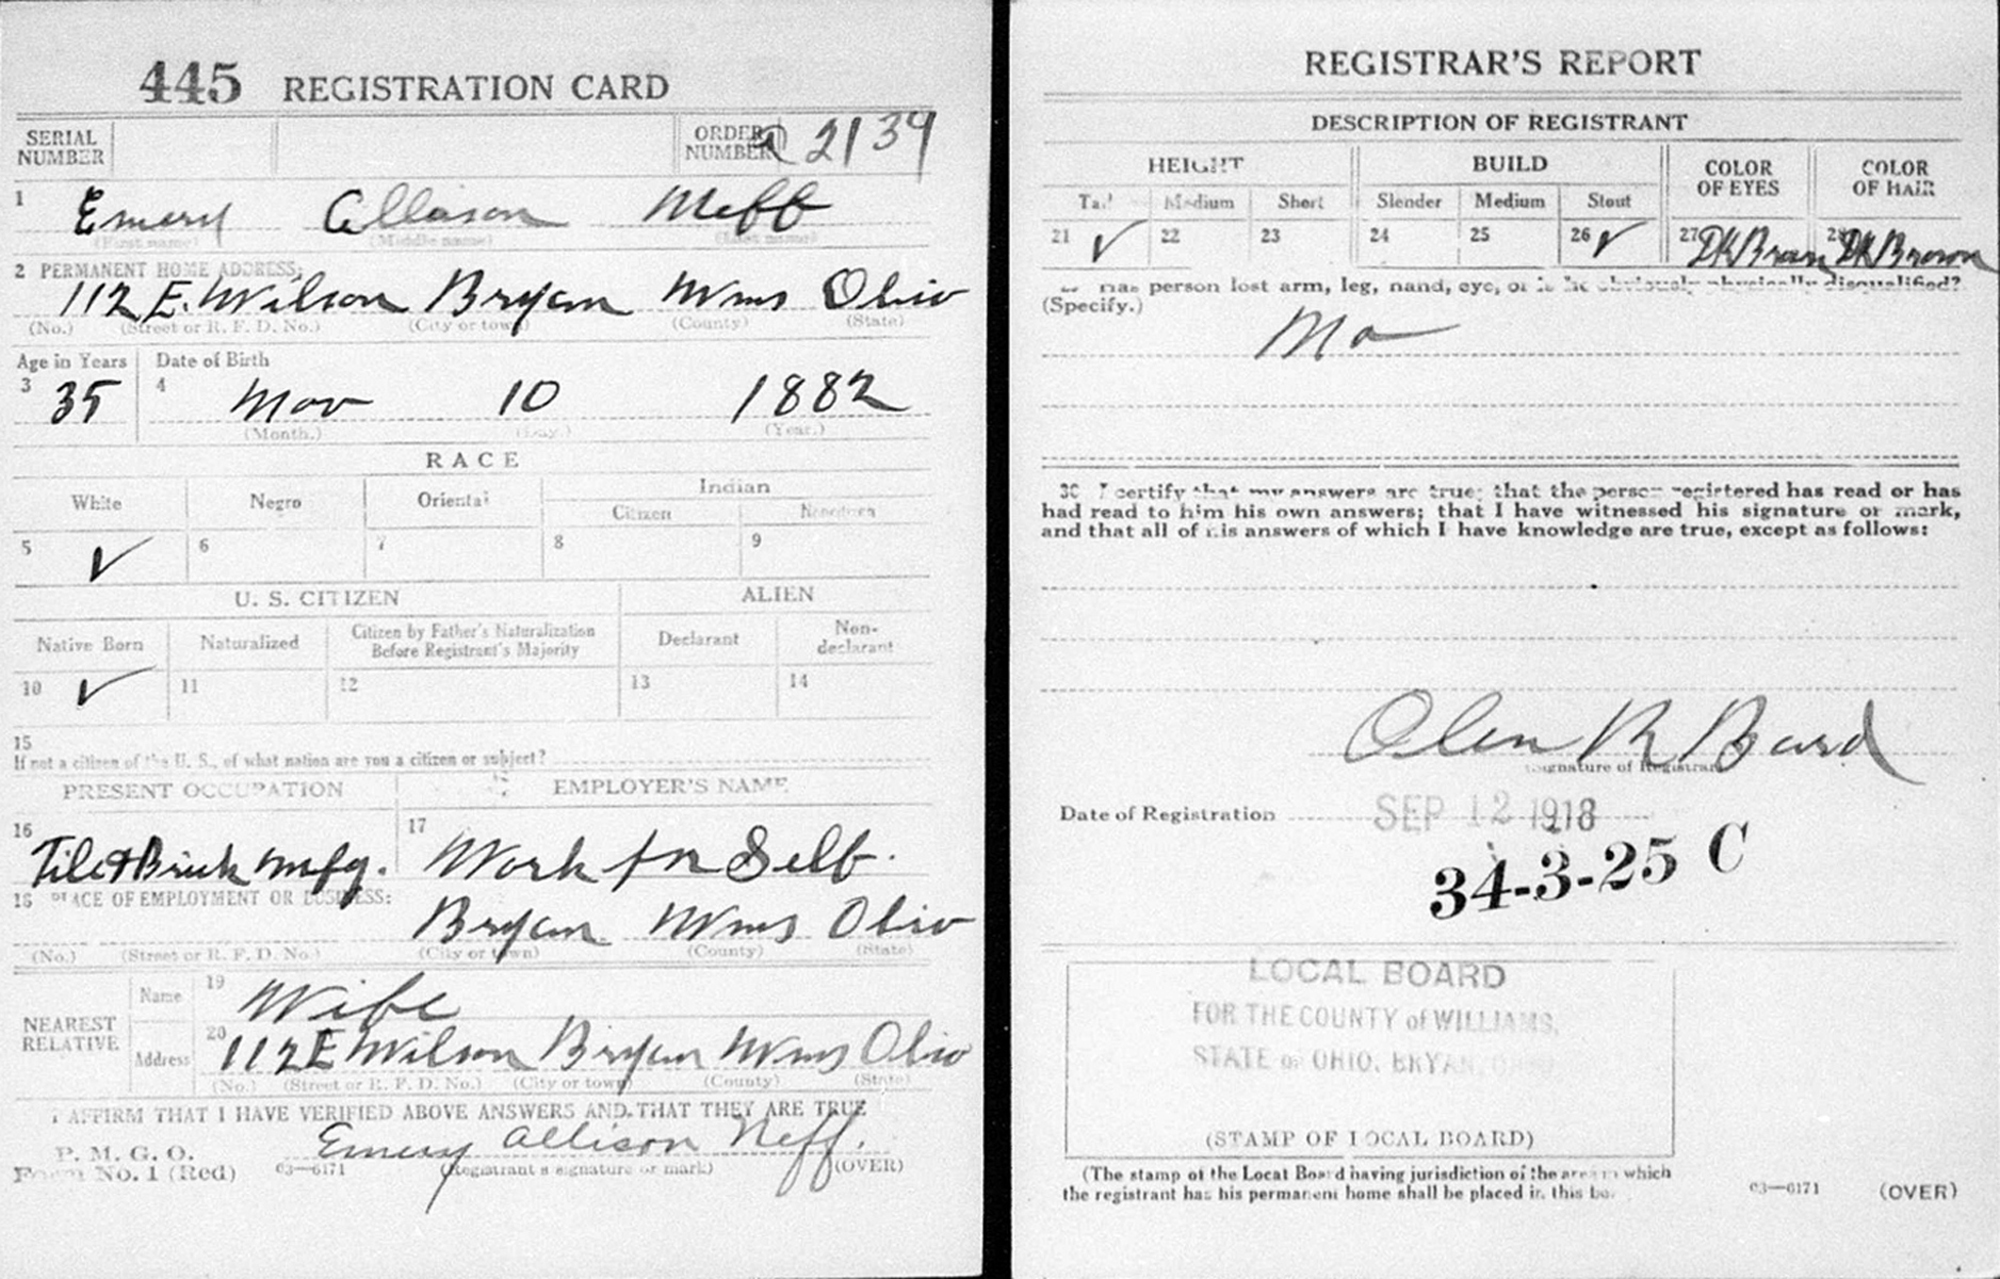 445 REGISTRATION CARD
SERIAL NUMBER
ORDER NUMBER A 2139
1 Emery Allison Neff
(First name) (Middle name) (Last name)
2 PERMANENT HOME ADDRESS:
112 E. Wilson Bryan Wms Ohio
(No.) (Street or R. F. D. No.) (City or town) (County) (State)
Age in Years Date of Birth
3 35 4 Nov 10 1882
(Month.) (Day.) (Year.)
RACE
White Negro Oriental Indian
Citizen Noncitizen
5 ✓ 6 7 8 9
U. S. CITIZEN ALIEN
Native Born Naturalized Citizen by Father's Naturalization Before Registrant's Majority Declarant Non-declarant
10 ✓ 11 12 13 14
15
If not a citizen of the U. S., of what nation are you a citizen or subject?
PRESENT OCCUPATION EMPLOYER'S NAME
16 Tile & Brick Mnfg. 17 Work for Self.
18 PLACE OF EMPLOYMENT OR BUSINESS:
Bryan Wms Ohio
(No.) (Street or R. F. D. No.) (City or town) (County) (State)
NEAREST RELATIVE
Name 19 Wife
Address 20 112 E Wilson Bryan Wms Ohio
(No.) (Street or R. F. D. No.) (City or town) (County) (State)
I AFFIRM THAT I HAVE VERIFIED ABOVE ANSWERS AND THAT THEY ARE TRUE
P. M. G. O.
Form No. 1 (Red) 03—6171 Emery Allison Neff.
(Registrant's signature or mark) (OVER)
REGISTRAR'S REPORT
DESCRIPTION OF REGISTRANT
HEIGHT BUILD COLOR OF EYES COLOR OF HAIR
Tall Medium Short Slender Medium Stout
21 ✓ 22 23 24 25 26 ✓ 27 Dk Brown 28 Dk Brown
29 Has person lost arm, leg, hand, eye, or is he obviously physically disqualified?
(Specify.) No
30 I certify that my answers are true; that the person registered has read or has
had read to him his own answers; that I have witnessed his signature or mark,
and that all of his answers of which I have knowledge are true, except as follows:
Olen R Bard
(Signature of Registrar)
Date of Registration SEP 12 1918
34-3-25 C
LOCAL BOARD
FOR THE COUNTY of WILLIAMS,
STATE of OHIO, BRYAN, OHIO
(STAMP OF LOCAL BOARD)
(The stamp of the Local Board having jurisdiction of the area in which
the registrant has his permanent home shall be placed in this box.)
03—6171 (OVER)